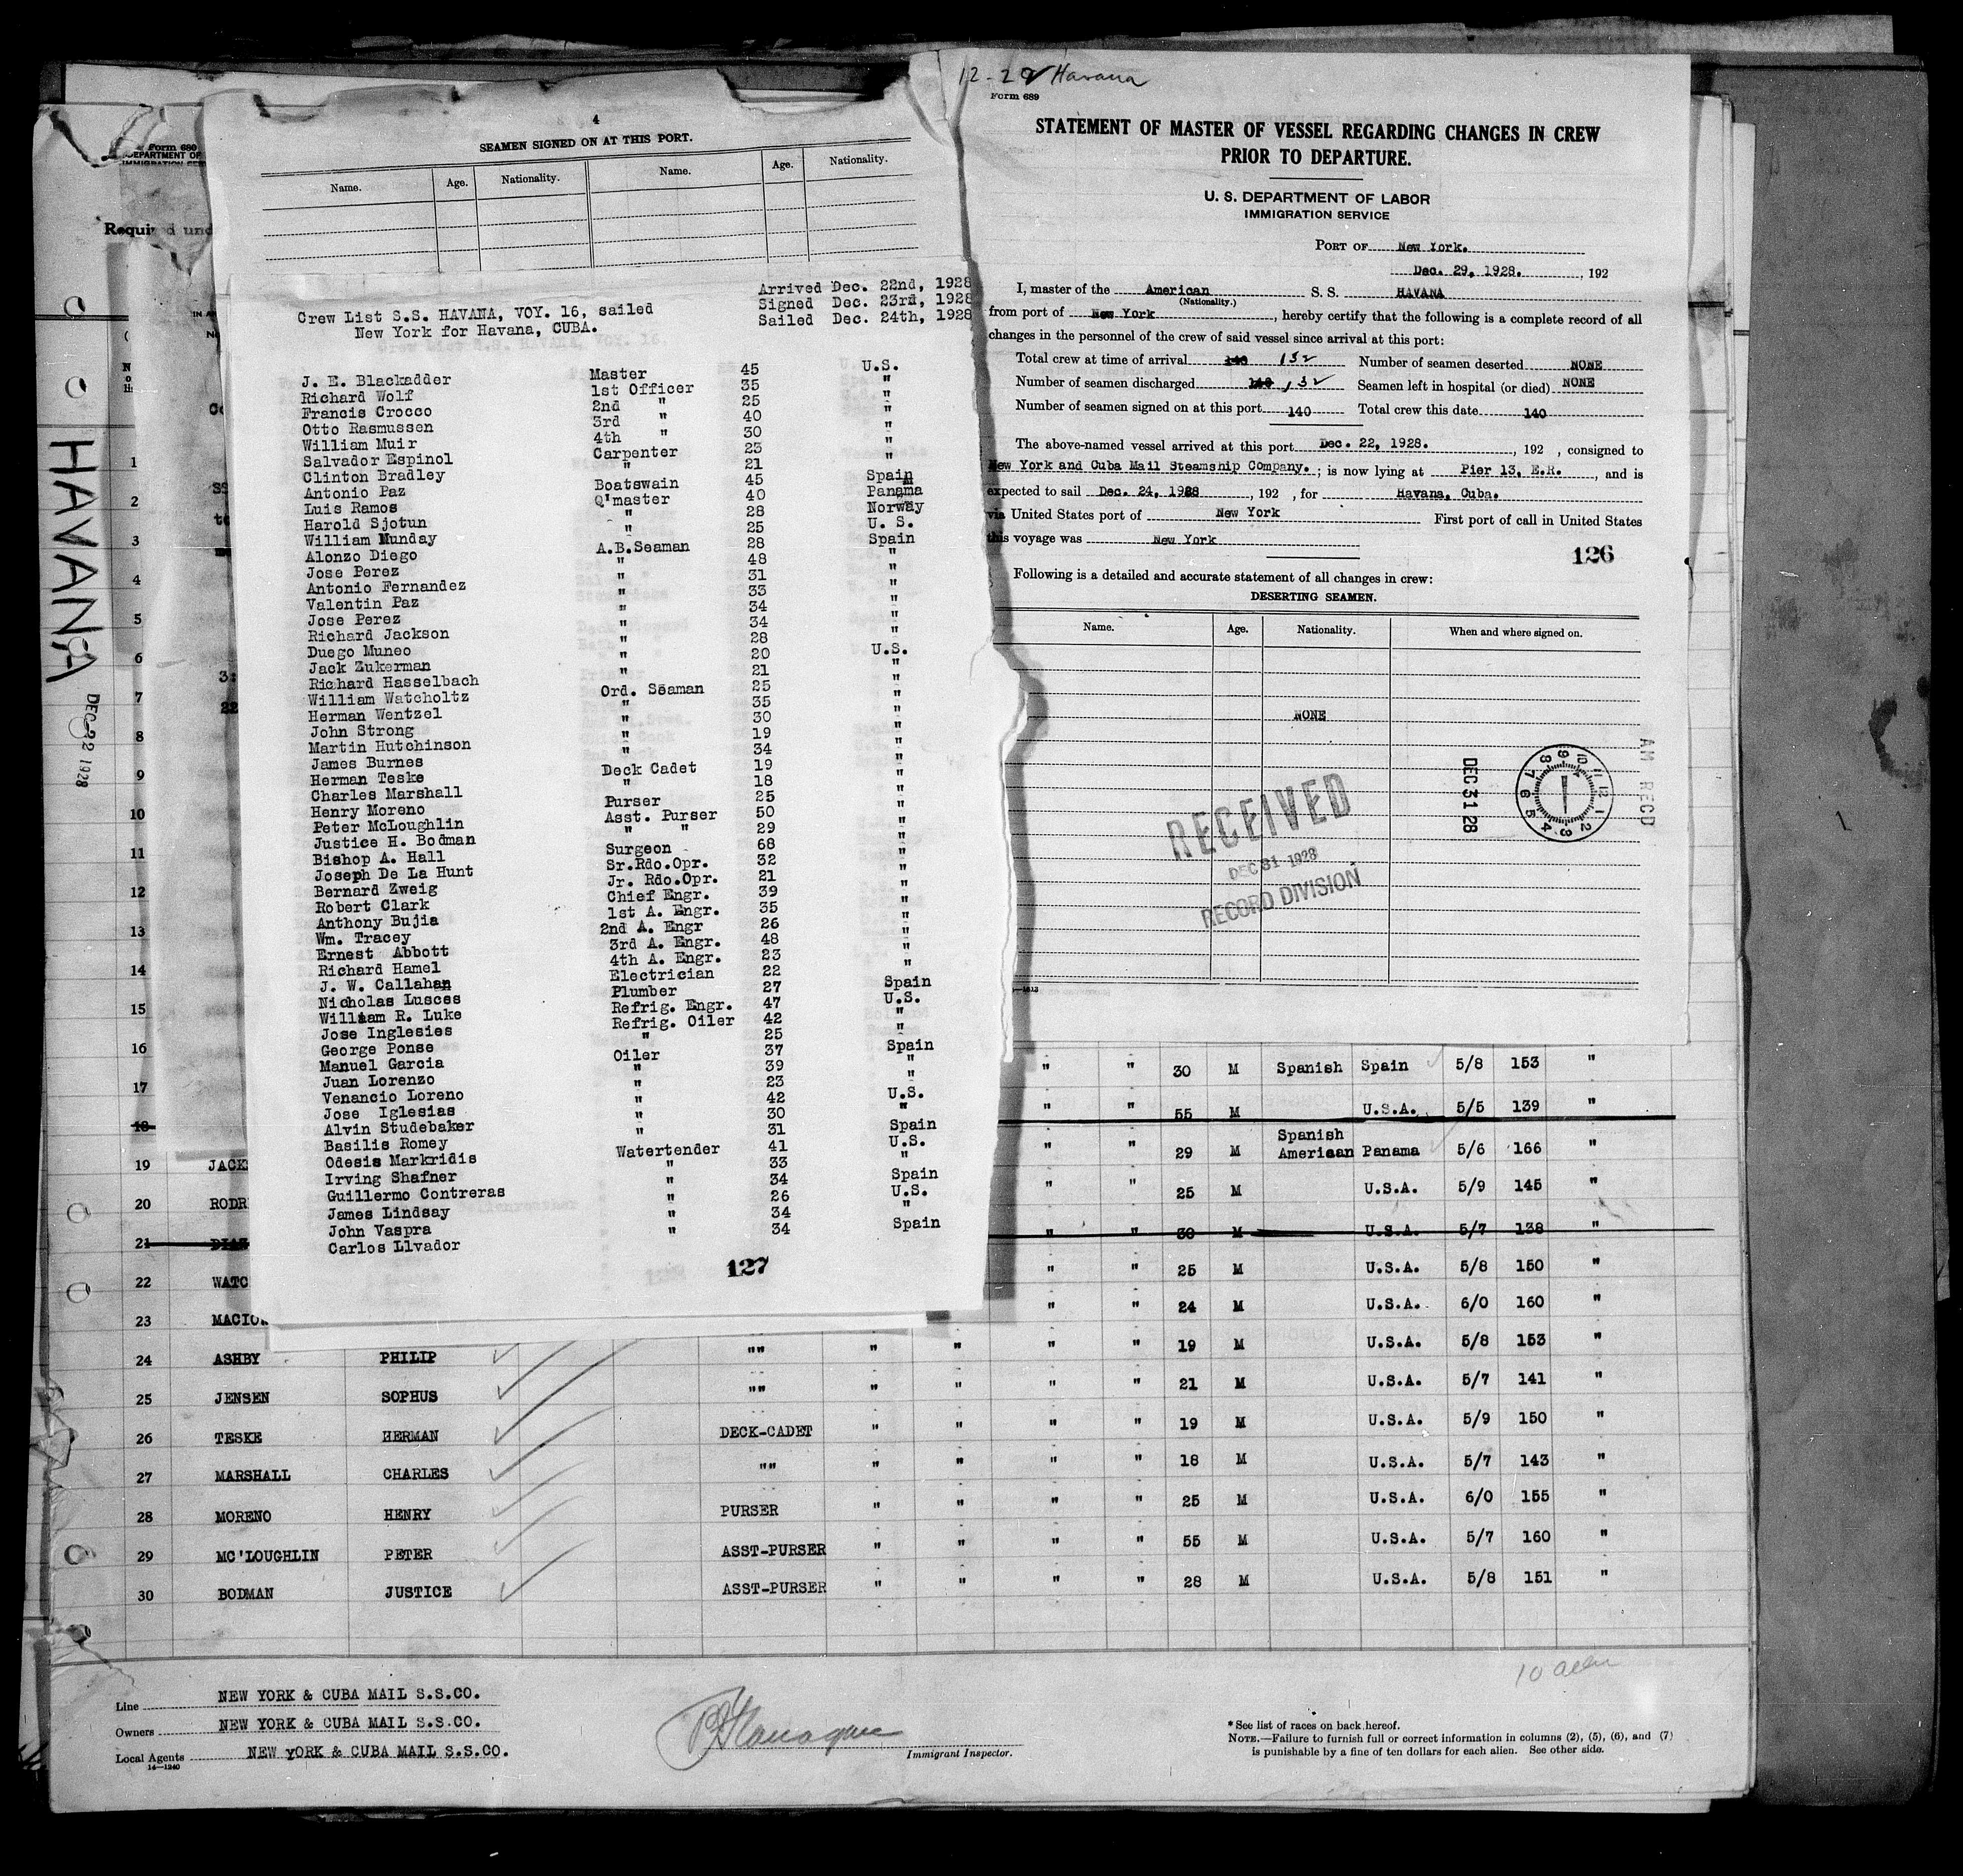 12-29 Havana
Form 689
STATEMENT OF MASTER OF VESSEL REGARDING CHANGES IN CREW
PRIOR TO DEPARTURE.
U. S. DEPARTMENT OF LABOR
IMMIGRATION SERVICE
PORT OF New York.
Dec. 29, 1928. , 192
I, master of the American S. S. HAVANA
(Nationality.)
from port of New York , hereby certify that the following is a complete record of all
changes in the personnel of the crew of said vessel since arrival at this port:
Total crew at time of arrival 140 132 Number of seamen deserted NONE
Number of seamen discharged 140 132 Seamen left in hospital (or died) NONE
Number of seamen signed on at this port 140 Total crew this date 140
The above-named vessel arrived at this port Dec. 22, 1928. , 192 , consigned to
New York and Cuba Mail Steamship Company. ; is now lying at Pier 13, E.R. , and is
expected to sail Dec. 24, 1928 , 192 , for Havana, Cuba.
via United States port of New York First port of call in United States
this voyage was New York
126
Following is a detailed and accurate statement of all changes in crew:
DESERTING SEAMEN.
Name. Age. Nationality. When and where signed on.
NONE
RECEIVED
DEC 31 1928
RECORD DIVISION
DEC 31 28
AM RECD
4
SEAMEN SIGNED ON AT THIS PORT.
Name. Age. Nationality. Name. Age. Nationality.
Arrived Dec. 22nd, 1928
Crew List S.S. HAVANA, VOY. 16, sailed Signed Dec. 23rd, 1928
New York for Havana, CUBA. Sailed Dec. 24th, 1928
J. E. Blackadder Master 45 U.S.
Richard Wolf 1st Officer 35 "
Francis Crocco 2nd " 25 "
Otto Rasmussen 3rd " 40 "
William Muir 4th " 30 "
Salvador Espinol Carpenter 23 "
Clinton Bradley " 21 "
Antonio Paz Boatswain 45 Spain
Luis Ramos Q'master 40 Panama
Harold Sjotun " 28 Norway
William Munday " 25 U. S.
Alonzo Diego A.B.Seaman 28 Spain
Jose Perez " 48 "
Antonio Fernandez " 31 "
Valentin Paz " 33 "
Jose Perez " 34 "
Richard Jackson " 34 "
Duego Muneo " 28 "
Jack Zukerman " 20 U.S.
Richard Hasselbach " 21 "
William Watcholtz Ord. Seaman 25 "
Herman Wentzel " 35 "
John Strong " 30 "
Martin Hutchinson " 19 "
James Burnes " 34 "
Herman Teske Deck Cadet 19 "
Charles Marshall " 18 "
Henry Moreno Purser 25 "
Peter McLoughlin Asst. Purser 50 "
Justice H. Bodman " " 29 "
Bishop A. Hall Surgeon 68 "
Joseph De La Hunt Sr.Rdo.Opr. 32 "
Bernard Zweig Jr. Rdo.Opr. 21 "
Robert Clark Chief Engr. 39 "
Anthony Bujia 1st A. Engr. 35 "
Wm. Tracey 2nd A. Engr 26 "
Ernest Abbott 3rd A. Engr. 48 "
Richard Hamel 4th A. Engr. 23 "
J. W. Callahan Electrician 22 "
Nicholas Lusces Plumber 27 Spain
William R. Luke Refrig. Engr. 47 U.S.
Jose Inglesies Refrig. Oiler 42 "
George Ponse " 25 "
Manuel Garcia Oiler 37 Spain
Juan Lorenzo " 39 "
Venancio Loreno " 23 "
Jose Iglesias " 42 U.S.
Alvin Studebaker " 30 "
Basilis Romey " 31 Spain
Odesis Markridis Watertender 41 U.S.
Irving Shafner " 33 "
Guillermo Contreras " 34 Spain
James Lindsay " 26 U.S.
John Vaspra " 34 "
Carlos Llvador " 34 Spain
127
HAVANA
DEC 22 1928
Form 680
DEPARTMENT OF
IMMIGRATION SER
Required und
1
2
3
4
5
6
7
8
9
10
11
12
13
14
15
16
17
18
" " 30 M Spanish Spain 5/8 153 "
" " 55 M U.S.A. 5/5 139 "
19 JACK " " 29 M Spanish American Panama 5/6 166 "
20 RODR " " 25 M U.S.A. 5/9 145 "
21 DIAZ " " 30 M U.S.A. 5/7 138 "
22 WATC " " 25 M U.S.A. 5/8 150 "
23 MACIO " " 24 M U.S.A. 6/0 160 "
24 ASHBY PHILIP "" " " " " 19 M U.S.A. 5/8 153 "
25 JENSEN SOPHUS "" " " " " 21 M U.S.A. 5/7 141 "
26 TESKE HERMAN DECK-CADET " " " " 19 M U.S.A. 5/9 150 "
27 MARSHALL CHARLES "" " " " " 18 M U.S.A. 5/7 143 "
28 MORENO HENRY PURSER " " " " 25 M U.S.A. 6/0 155 "
29 MC'LOUGHLIN PETER ASST-PURSER " " " " 55 M U.S.A. 5/7 160 "
30 BODMAN JUSTICE ASST-PURSER " " " " 28 M U.S.A. 5/8 151 "
10 alien
Line NEW YORK & CUBA MAIL S.S.CO.
Owners NEW YORK & CUBA MAIL S.S.CO.
Local Agents NEW YORK & CUBA MAIL S.S.CO.
14-1240
Immigrant Inspector.
*See list of races on back hereof.
NOTE.—Failure to furnish full or correct information in columns (2), (5), (6), and (7)
is punishable by a fine of ten dollars for each alien. See other side.